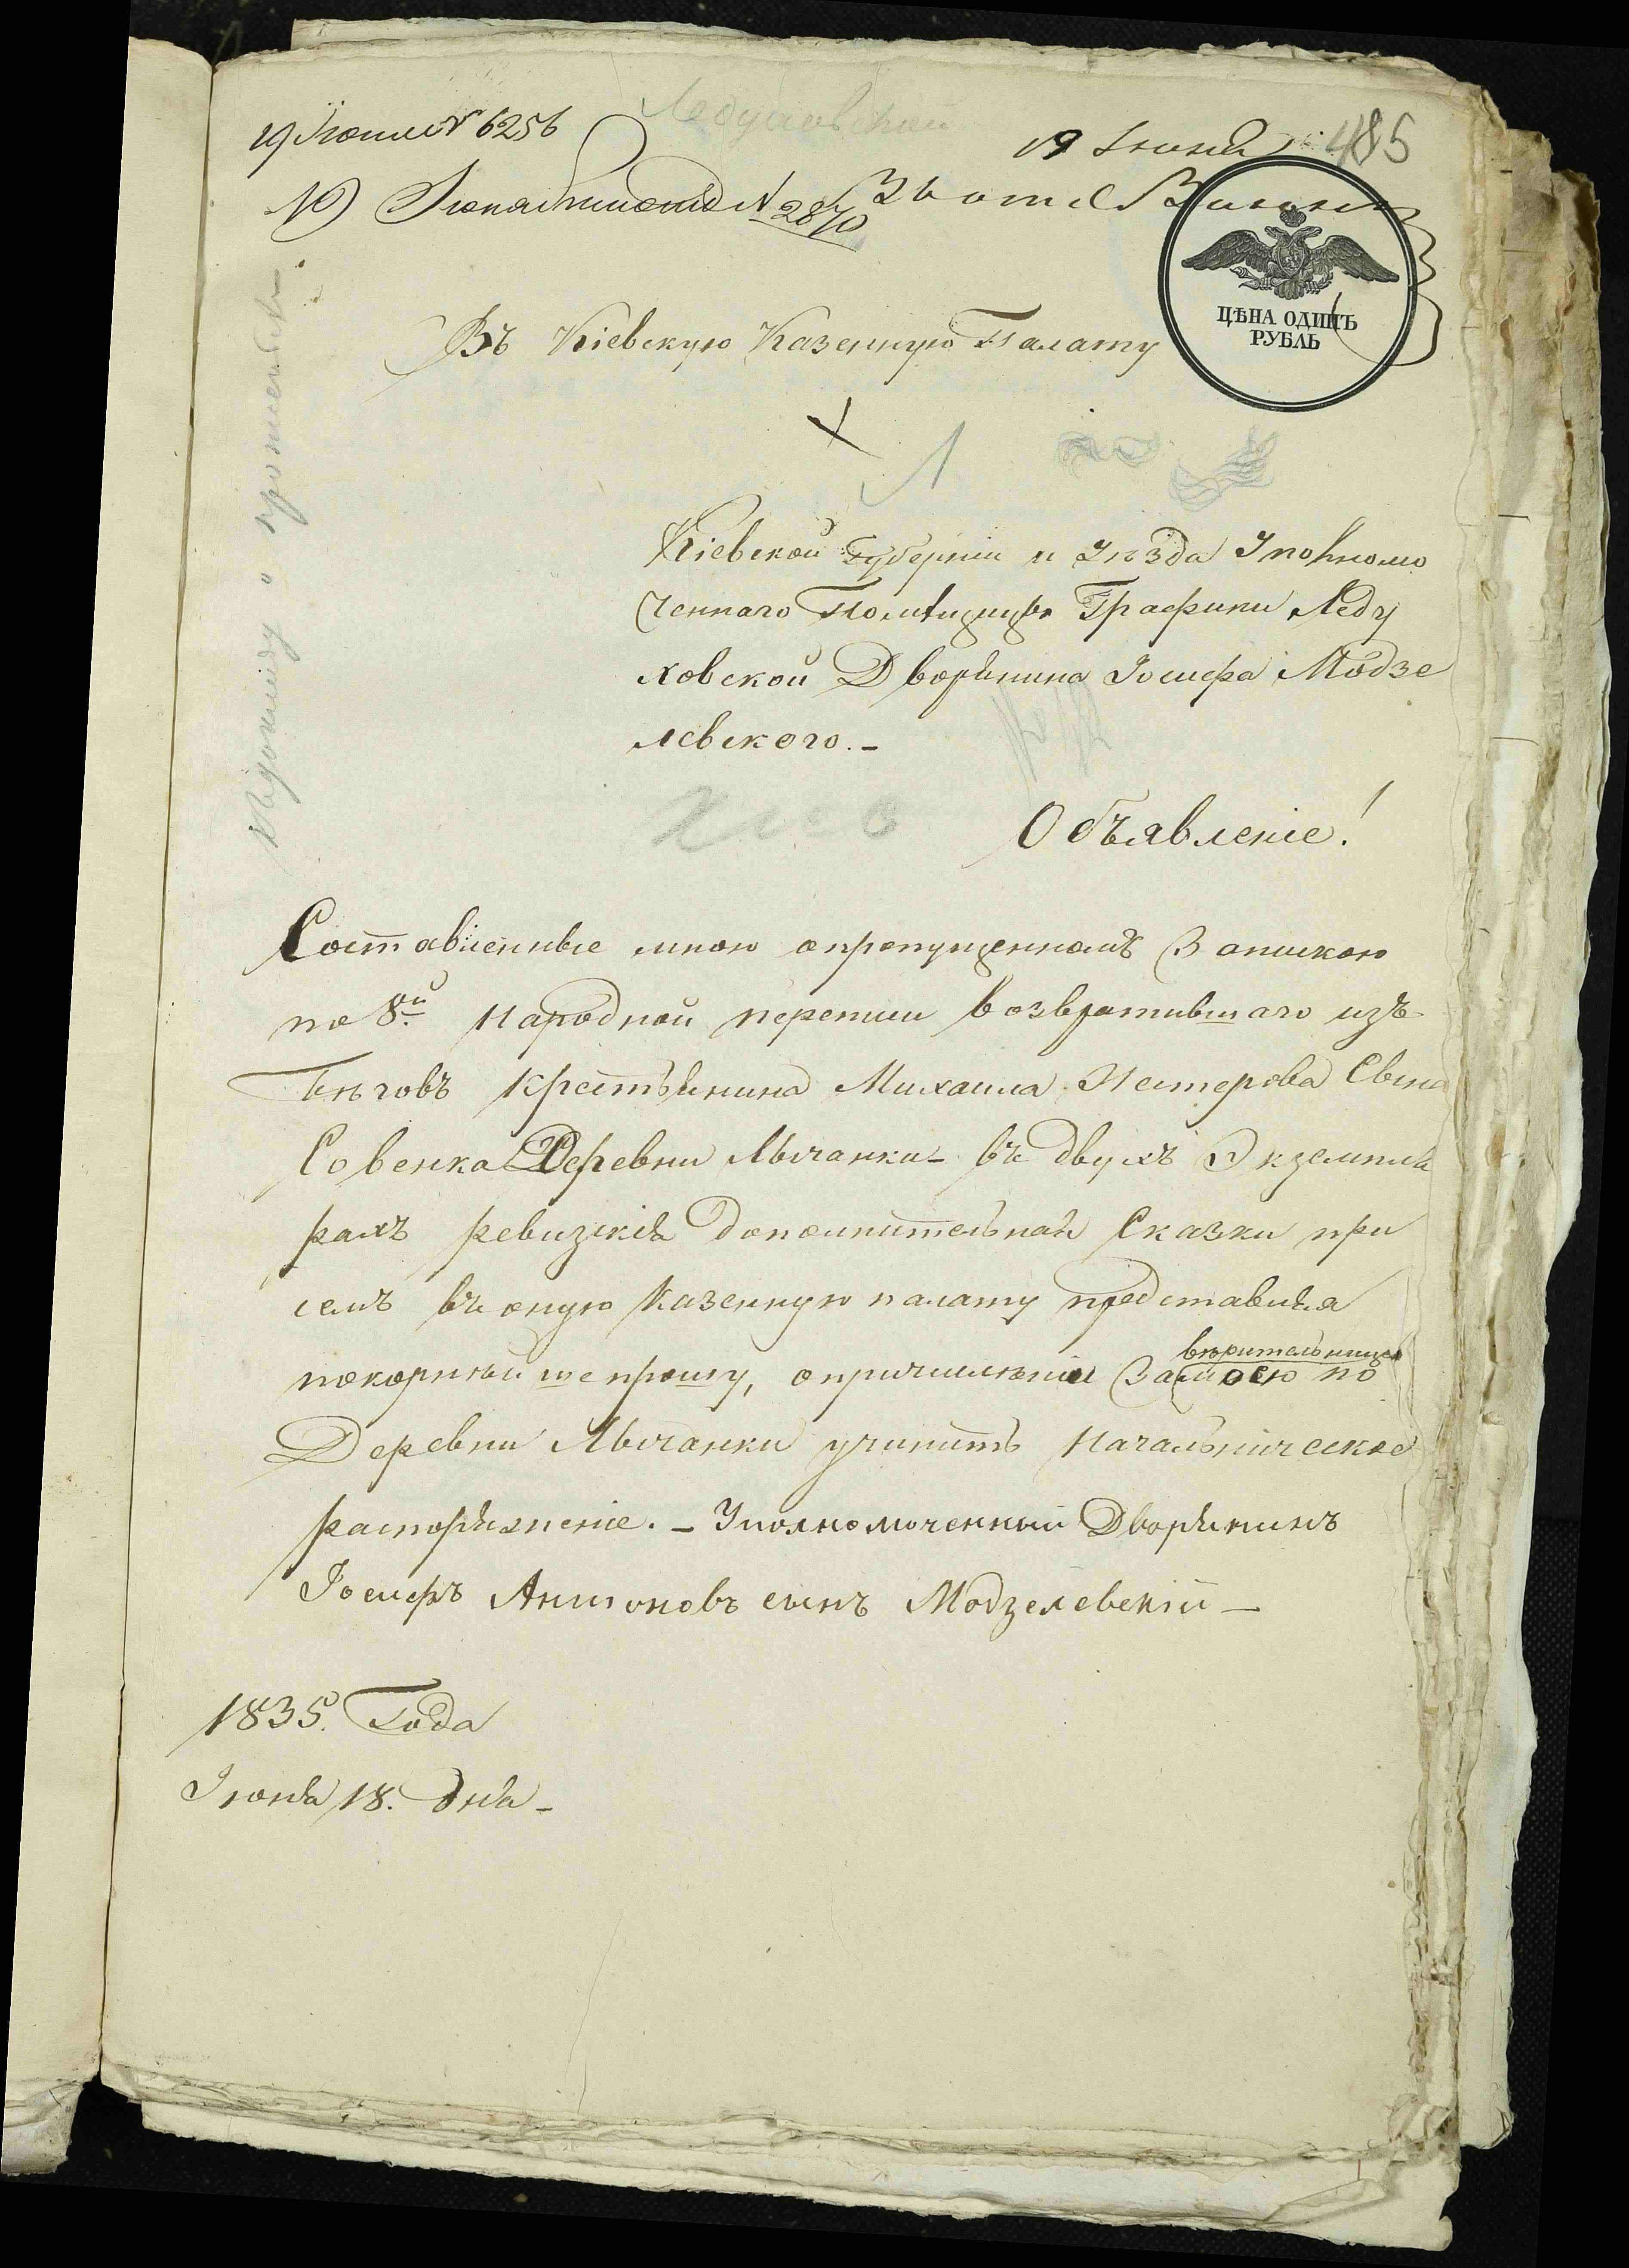 19 Іюня № 6256
19 Іюня
485
№ 2870
ЦѢНА ОДИНЪ
РУБЛЬ
Въ Кіевскую Казенную Палату
Кіевской Губерніи и Уѣзда Уполномо
ченнаго Помѣщицы Графини Леду
ховской Дворянина Іосифа Модзе
левского.-
Объявленіе!
Составленные мною о пропущенномъ Запискою
по 8й Народной переписи возвратившаго изъ
Бѣговъ крестьянина Михаила Нестерова Сына
Совенка Деревни Лычанки - въ двухъ Экземпля
рахъ ревизкія дополнительная Сказки при
семъ въ оную Казенную палату представляя
покорнѣйше прошу, о причисленіи За моею вѣрительницею по
Деревни Лычанки учинить Начальническое
распоряженіе. - Уполномоченный Дворянинъ
Іосифъ Антоновъ сынъ Модзелевскій -
1835. Года
Іюня 18. дня -